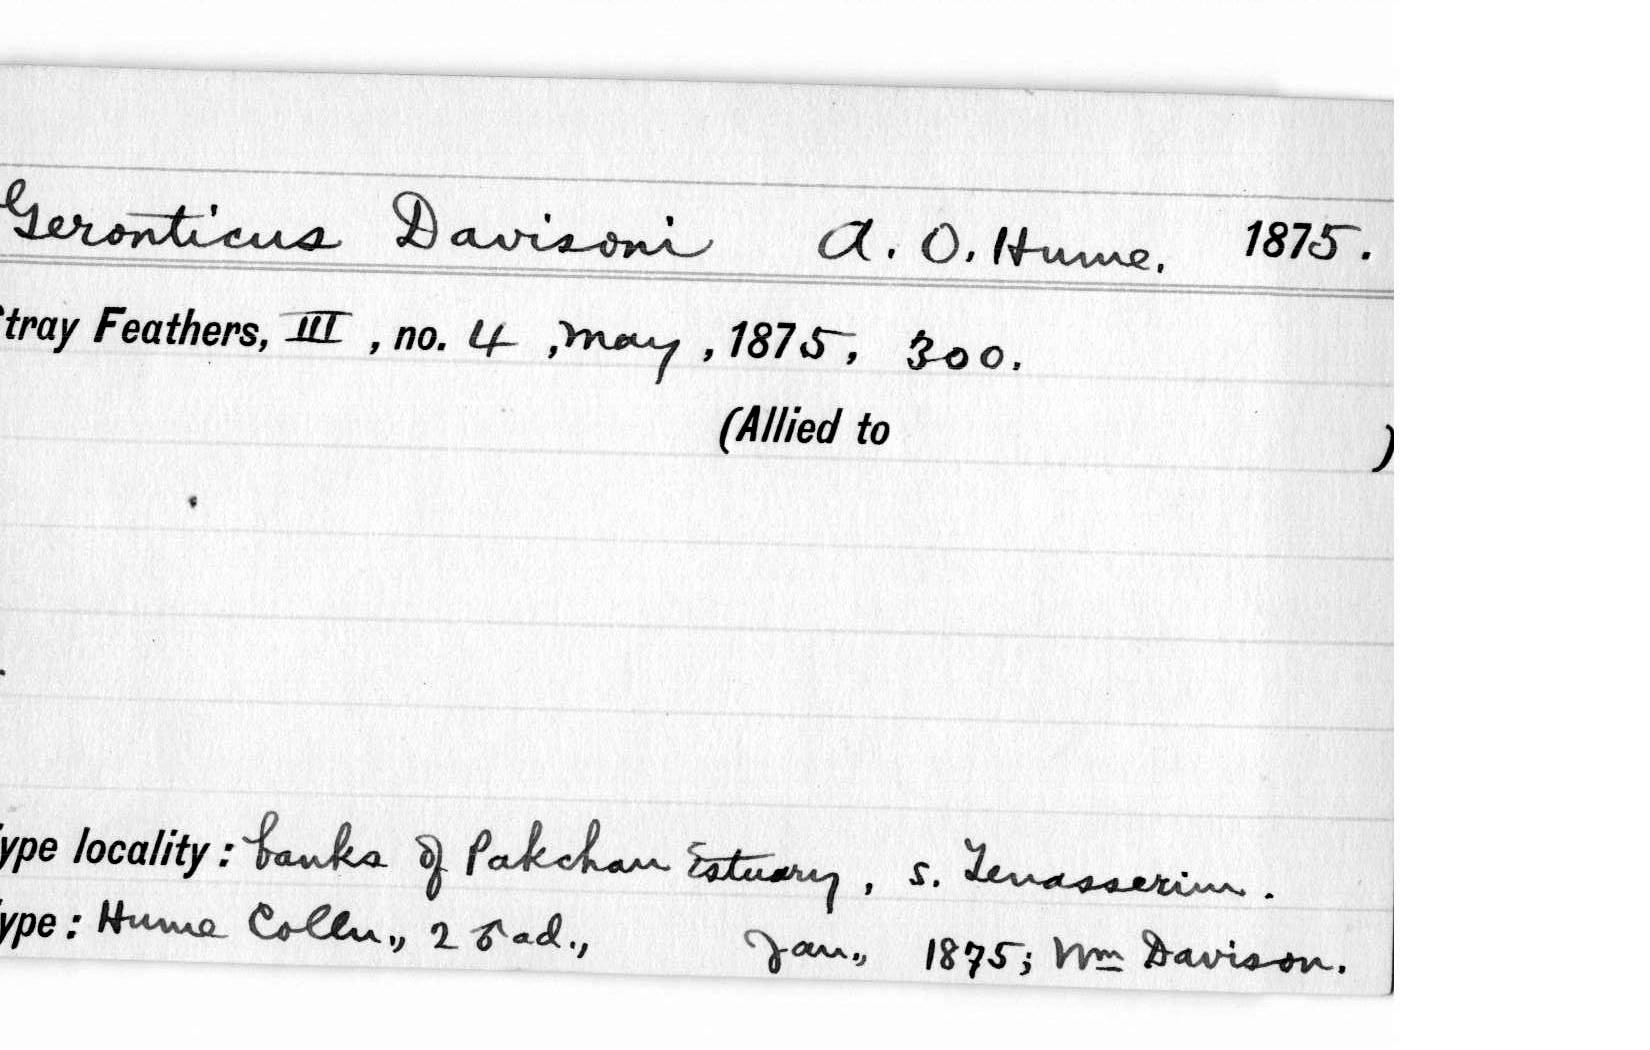 Geronticus Davisoni A. O. Hume. 1875.
tray Feathers, III, no. 4, May, 1875, 300.
(Allied to )
ype locality: banks of Pakchan Estuary, s. Tenasserim.
ype: Hume Colln., 2 ad., Jan., 1875; Wm Davison.